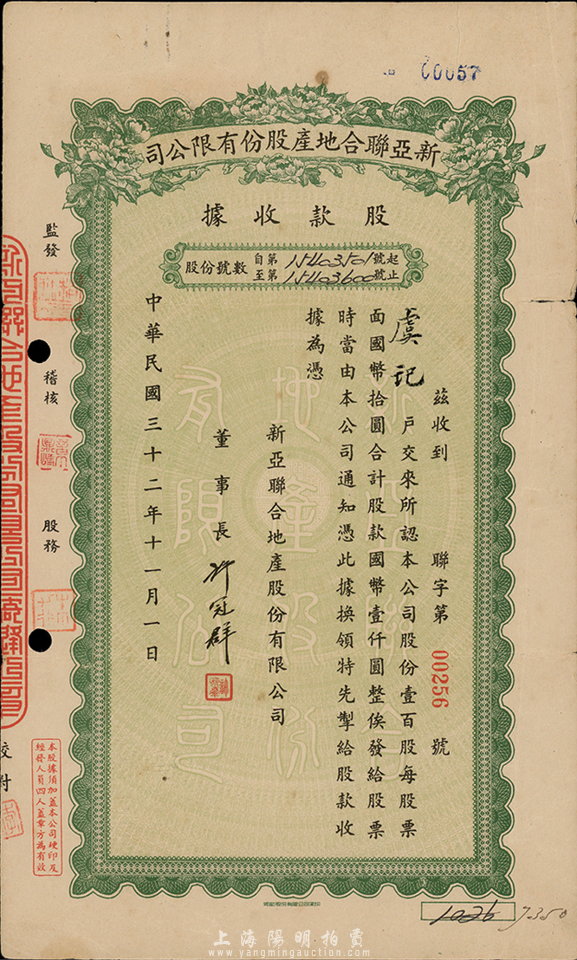 00057
新亞聯合地產股份有限公司
股款收據
股份號數
自第15403501號起
至第15403600號止
聯字第 00256 號
茲收到
虞記 戶交來所認本公司股份壹百股每股票
面國幣拾圓合計股款國幣壹仟圓整俟發給股票
時當由本公司通知憑此據換領特先掣給股款收
據為憑
新亞聯合地產股份有限公司
董事長 許冠群
中華民國三十二年十一月一日
監發
稽核
股務
校對
本股據須加蓋本公司硬印及
經發人員四人蓋章方為有效
1026
7350
上海陽明拍賣
www.yangmingauction.com